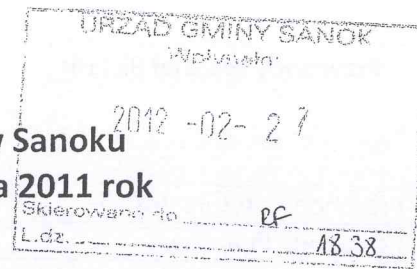 URZĄD GMINY SANOK
Wpłynęło:
2012 -02- 27
w Sanoku
a 2011 rok
Skierowano do RF
L.dz. 1838